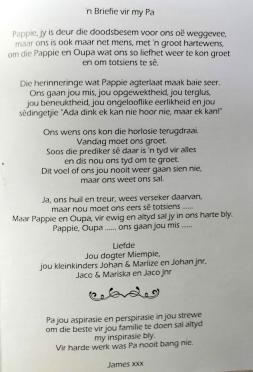 'n Briefie vir my Pa
Pappie, jy is deur die doodsbesem voor ons oë weggevee,
maar ons is ook maar net mens, met 'n groot hartewens,
om die Pappie en Oupa wat ons so liefhet weer te kon groet
en om totsiens te sê.
Die herinneringe wat Pappie agterlaat maak baie seer.
Ons gaan jou mis, jou opgewektheid, jou terglus,
jou beneuktheid, jou ongelooflike eerlikheid en jou
sêdingetjie "Ada dink ek kan nie hoor nie, maar ek kan!"
Ons wens ons kon die horlosie terugdraai.
Vandag moet ons groet.
Soos die prediker sê daar is 'n tyd vir alles
en dis nou ons tyd om te groet.
Dit voel of ons jou nooit weer gaan sien nie,
maar ons weet ons sal.
Ja, ons huil en treur, wees verseker daarvan,
maar nou moet ons eers sê totsiens .....
Maar Pappie en Oupa, vir ewig en altyd sal jy in ons harte bly.
Pappie, Oupa ...... ons gaan jou mis .....
Liefde
Jou dogter Miempie,
jou kleinkinders Johan & Marlize en Johan jnr,
Jaco & Mariska en Jaco jnr
Pa jou aspirasie en perspirasie in jou strewe
om die beste vir jou familie te doen sal altyd
my inspirasie bly.
Vir harde werk was Pa nooit bang nie.
James xxx